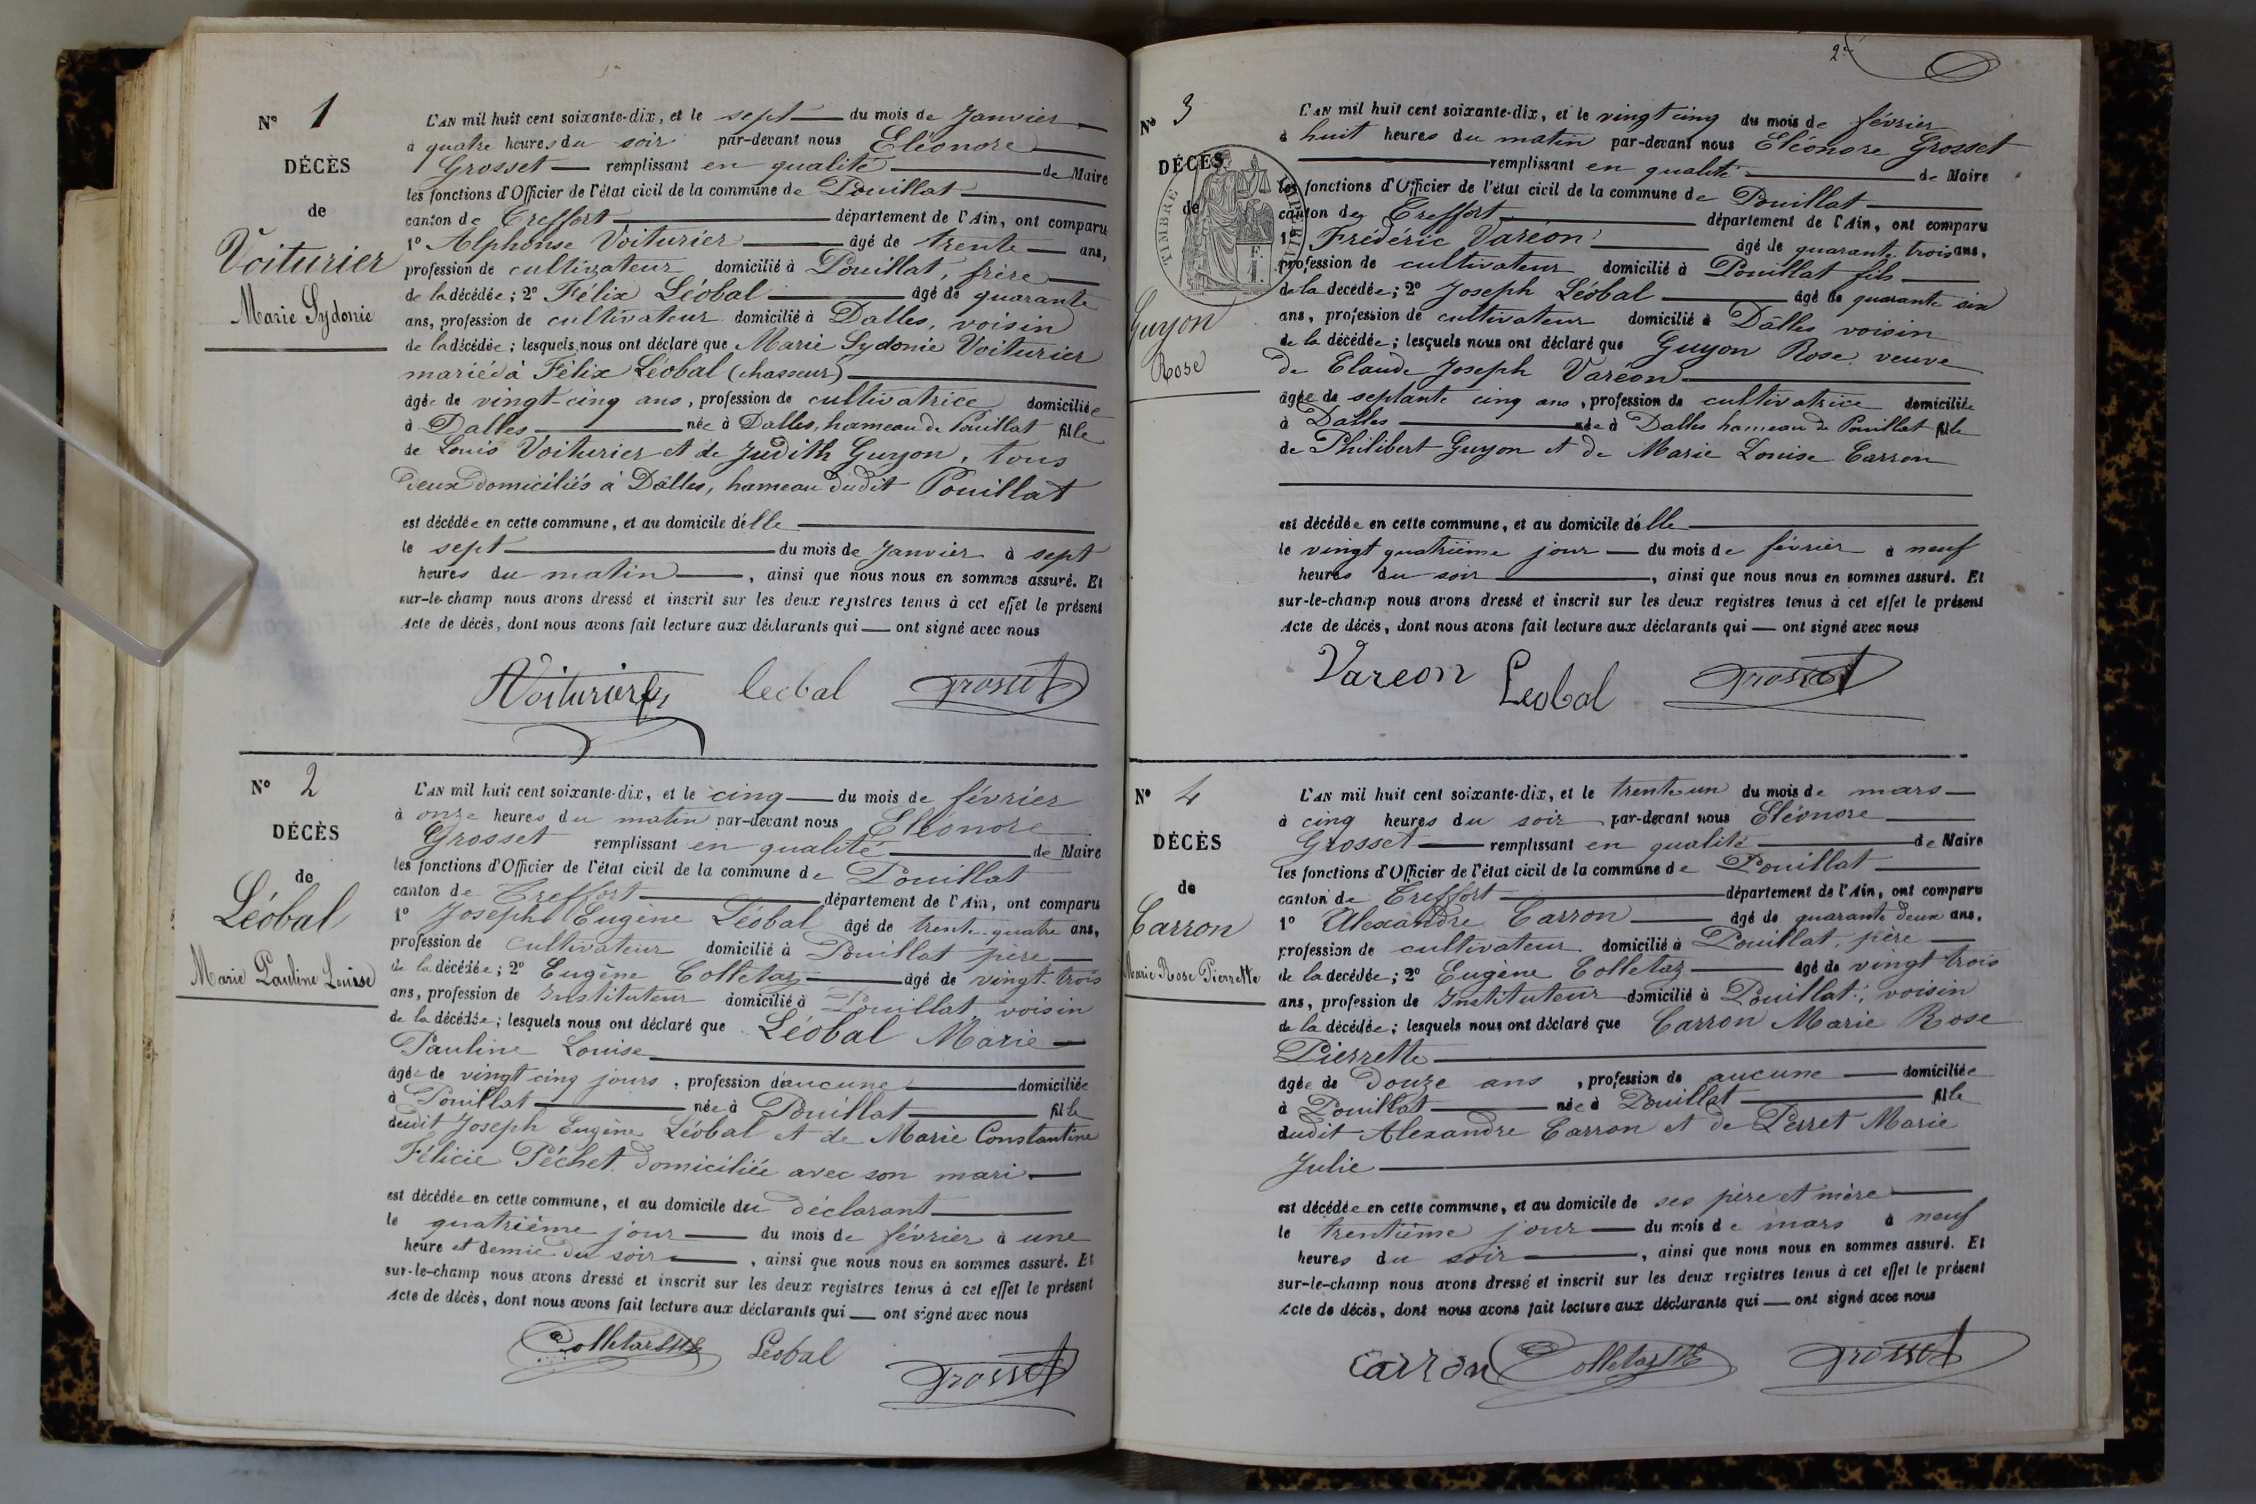 N° 1
DÉCÈS
de
Voiturier
Marie Sydonie
L'AN mil huit cent soixante-dix, et le sept du mois de Janvier
à quatre heures du soir par-devant nous Eléonore
Grosset remplissant en qualité de Maire
les fonctions d'Officier de l'état civil de la commune de Pouillat
canton de Treffort département de l'Ain, ont comparu
1° Alphonse Voiturier âgé de trente ans,
profession de cultivateur domicilié à Pouillat, frère
de la décédée; 2° Félix Léobal âgé de quarante
ans, profession de cultivateur domicilié à Dalles, voisin
de la décédée; lesquels nous ont déclaré que Marie Sydonie Voiturier
mariée à Félix Léobal (chasseur)
âgée de vingt-cinq ans, profession de cultivatrice domiciliée
à Dalles née à Dalles, hameau de Pouillat fille
de Louis Voiturier et de Judith Guyon, tous
deux domiciliés à Dalles, hameau dudit Pouillat
est décédée en cette commune, et au domicile d'elle
le sept du mois de Janvier à sept
heures du matin, ainsi que nous nous en sommes assuré. Et
sur-le-champ nous avons dressé et inscrit sur les deux registres tenus à cet effet le présent
Acte de décès, dont nous avons fait lecture aux déclarants qui ont signé avec nous
Voiturier Leobal Grosset
N° 2
DÉCÈS
de
Léobal
Marie Pauline Louise
L'AN mil huit cent soixante-dix, et le cinq du mois de février
à onze heures du matin par-devant nous Eléonore
Grosset remplissant en qualité de Maire
les fonctions d'Officier de l'état civil de la commune de Pouillat
canton de Treffort département de l'Ain, ont comparu
1° Joseph Eugène Léobal âgé de trente-quatre ans,
profession de cultivateur domicilié à Pouillat père
de la décédée; 2° Eugène Colletaz âgé de vingt-trois
ans, profession de Instituteur domicilié à Pouillat, voisin
de la décédée; lesquels nous ont déclaré que Léobal Marie
Pauline Louise
âgée de vingt cinq jours, profession d'aucune domiciliée
à Pouillat née à Pouillat fille
dudit Joseph Eugène Léobal et de Marie Constantine
Félicie Péchet domiciliée avec son mari
est décédée en cette commune, et au domicile du déclarant
le quatrième jour du mois de février à une
heure et demie du soir, ainsi que nous nous en sommes assuré. Et
sur-le-champ nous avons dressé et inscrit sur les deux registres tenus à cet effet le présent
Acte de décès, dont nous avons fait lecture aux déclarants qui ont signé avec nous
Colletaz Leobal Grosset
2
N° 3
DÉCÈS
de
Guyon
Rose
TIMBRE IMPERIAL
F.
1
L'AN mil huit cent soixante-dix, et le vingt cinq du mois de février
à huit heures du matin par-devant nous Eléonore Grosset
remplissant en qualité de Maire
les fonctions d'Officier de l'état civil de la commune de Pouillat
canton de Treffort département de l'Ain, ont comparu
1° Frédéric Varéon âgé de quarante-trois ans,
profession de cultivateur domicilié à Pouillat fils
de la décédée; 2° Joseph Léobal âgé de quarante six
ans, profession de cultivateur domicilié à Dâlles voisin
de la décédée; lesquels nous ont déclaré que Guyon Rose veuve
de Claude Joseph Varéon
âgée de septante cinq ans, profession de cultivatrice domiciliée
à Dalles née à Dalles hameau de Pouillat fille
de Philibert Guyon et de Marie Louise Carron
est décédée en cette commune, et au domicile d'elle
le vingt quatrième jour du mois de février à neuf
heures du soir, ainsi que nous nous en sommes assuré. Et
sur-le-champ nous avons dressé et inscrit sur les deux registres tenus à cet effet le présent
Acte de décès, dont nous avons fait lecture aux déclarants qui ont signé avec nous
Vareon Leobal Grosset
N° 4
DÉCÈS
de
Carron
Marie Rose Pierrette
L'AN mil huit cent soixante-dix, et le trente un du mois de mars
à cinq heures du soir par-devant nous Eléonore
Grosset remplissant en qualité de Maire
les fonctions d'Officier de l'état civil de la commune de Pouillat
canton de Treffort département de l'Ain, ont comparu
1° Alexandre Carron âgé de quarante deux ans,
profession de cultivateur domicilié à Pouillat, père
de la décédée; 2° Eugène Colletaz âgé de vingt trois
ans, profession de Instituteur domicilié à Pouillat, voisin
de la décédée; lesquels nous ont déclaré que Carron Marie Rose
Pierrette
âgée de Douze ans, profession de aucune domiciliée
à Pouillat née à Pouillat fille
dudit Alexandre Carron et de Perret Marie
Julie
est décédée en cette commune, et au domicile de ses père et mère
le trentième jour du mois de mars à neuf
heures du soir, ainsi que nous nous en sommes assuré. Et
sur-le-champ nous avons dressé et inscrit sur les deux registres tenus à cet effet le présent
Acte de décès, dont nous avons fait lecture aux déclarants qui ont signé avec nous
Carron Colletaz Grosset